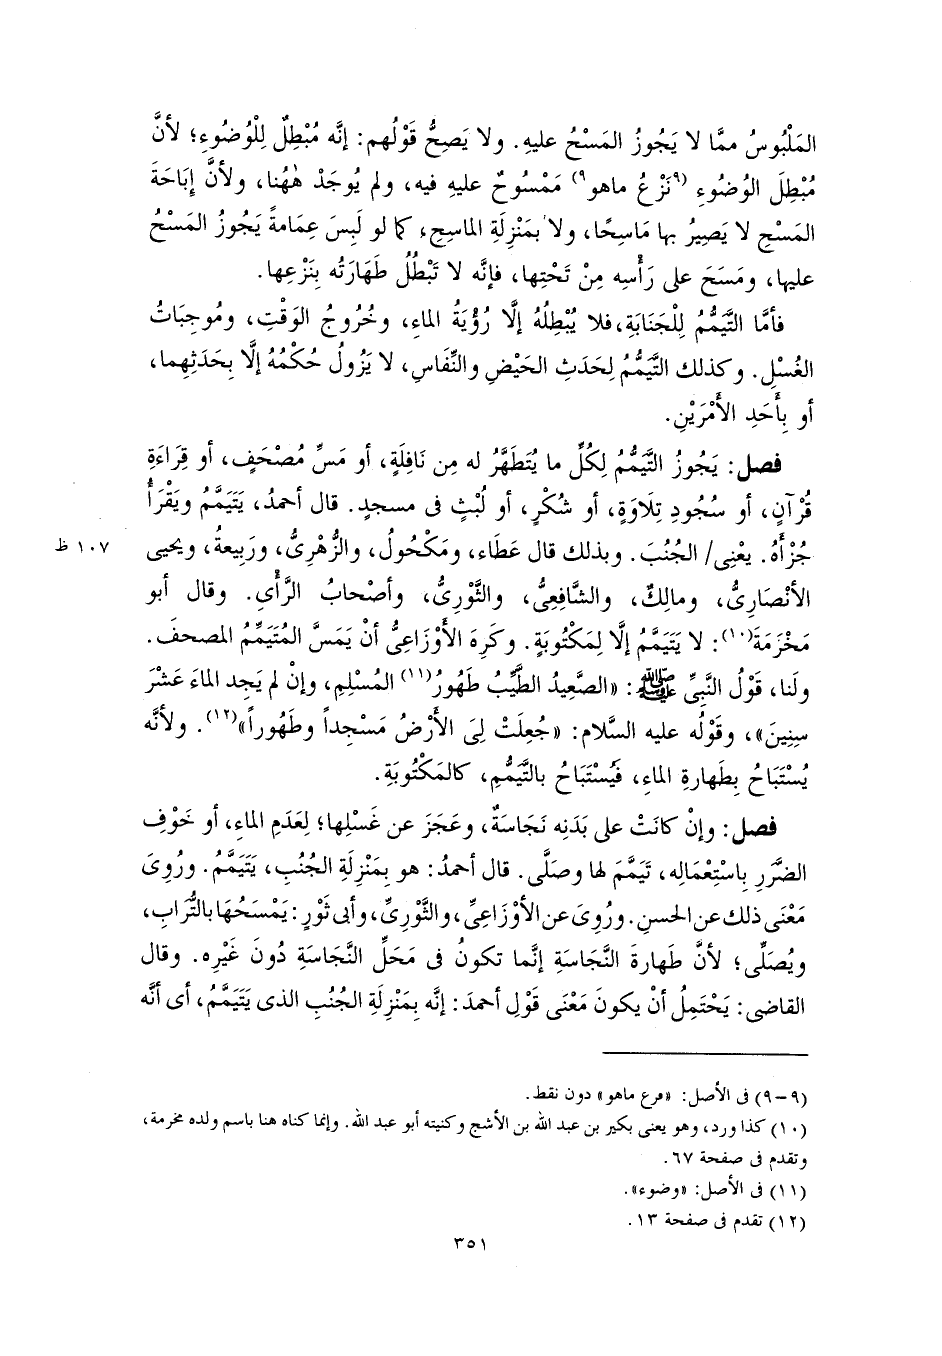 المَلْبُوسُ ممَّا لا يَجُوزُ المَسْحُ عليهِ. ولا يَصِحُّ قَوْلُهم: إنَّه مُبْطِلٌ لِلْوُضُوءِ؛ لأنَّ
مُبْطِلَ الوُضُوءِ (٩نَزْعُ ماهو٩) مَمْسُوحٌ عليهِ فيه، ولم يُوجَدْ هٰهُنا، ولأنَّ إبَاحَةَ
المَسْحِ لا يَصِيرُ بها مَاسِحًا، ولا بمَنْزِلَةِ الماسِحِ، كما لو لَبِسَ عِمَامةً يَجُوزُ المَسْحُ
عليها، ومَسَحَ على رَأْسِه مِنْ تَحْتِها، فإنَّه لا تَبْطُلُ طَهَارَتُه بِنَزْعِها.
فأمَّا التَّيَمُّمُ لِلْجَنَابَةِ، فلا يُبْطِلُهُ إلَّا رُؤْيَةُ الماءِ، وخُرُوجُ الوَقْتِ، ومُوجِبَاتُ
الغُسْلِ. وكذلك التَّيَمُّمُ لِحَدَثِ الحَيْضِ والنِّفَاسِ، لا يَزُولُ حُكْمُهُ إلَّا بِحَدَثِهِما،
أو بِأَحَدِ الأَمْرَيْنِ.
فصل: يَجُوزُ التَّيَمُّمُ لِكُلِّ ما يُتَطَهَّرُ له مِن نَافِلَةٍ، أو مَسِّ مُصْحَفٍ، أو قِرَاءَةِ
قُرْآنٍ، أو سُجُودِ تِلَاوَةٍ، أو شُكْرٍ، أو لُبْثٍ فى مسجدٍ. قال أحمدُ، يَتَيَمَّمُ ويَقْرَأُ
جُزْأَهُ. يعْنِى/ الجُنُبَ. وبذلك قال عَطَاء، ومَكْحُول، والزُّهْرِىُّ، ورَبِيعةُ، ويحيى
١٠٧ ظ
الأنْصَارِىُّ، ومالِكٌ، والشَّافِعِىُّ، والثَّوْرِىُّ، وأصْحابُ الرَّأْىِ. وقال أبو
مَخْرَمَةَ(١٠): لا يَتَيَمَّمُ إلَّا لِمَكْتُوبَةٍ. وكَرِهَ الأَوْزَاعِىُّ أنْ يَمَسَّ المُتَيَمِّمُ المصحفَ.
ولَنا، قَوْلُ النَّبِىِّ ﷺ: «الصَّعِيدُ الطَّيِّبُ طَهُورُ(١١) المُسْلِمِ، وإنْ لم يَجِد الماءَ عَشْرَ
سِنِينَ»، وقَوْلُه عليه السَّلام: «جُعِلَتْ لِىَ الأَرْضُ مَسْجِداً وطَهُوراً»(١٢). ولأنَّه
يُسْتَبَاحُ بِطَهارةِ الماءِ، فَيُسْتَباحُ بالتَّيَمُّمِ، كالمَكْتُوبَةِ.
فصل: وإنْ كانَتْ على بَدَنِه نَجَاسَةٌ، وعَجَزَ عن غَسْلِها؛ لِعَدَمِ الماءِ، أو خَوْفِ
الضَّررِ بِاسْتِعْمالِه، تَيَمَّمَ لها وصَلَّى. قال أحمدُ: هو بِمَنْزِلَةِ الجُنُبِ، يَتَيَمَّمُ. ورُوِىَ
مَعْنَى ذلك عن الحسنِ. ورُوِىَ عن الأوْزَاعِىِّ، والثَّوْرِىِّ، وأبى ثَوْرٍ: يَمْسَحُها بالتُّرَابِ،
ويُصَلِّى؛ لأنَّ طَهارةَ النَّجَاسَةِ إنَّما تكونُ فى مَحَلِّ النَّجَاسَةِ دُونَ غَيْرِه. وقال
القاضى: يَحْتَمِلُ أنْ يكونَ مَعْنَى قَوْلِ أحمدَ: إنَّه بِمَنْزِلَةِ الجُنُبِ الذى يَتَيَمَّمُ، أى أنَّه
(٩-٩) فى الأصل: «فرع ماهو» دون نقط.
(١٠) كذا ورد، وهو يعنى بكير بن عبد الله بن الأشج وكنيته أبو عبد الله. وإنما كناه هنا باسم ولده مخرمة،
وتقدم فى صفحة ٦٧.
(١١) فى الأصل: «وضوء».
(١٢) تقدم فى صفحة ١٣.
٣٥١